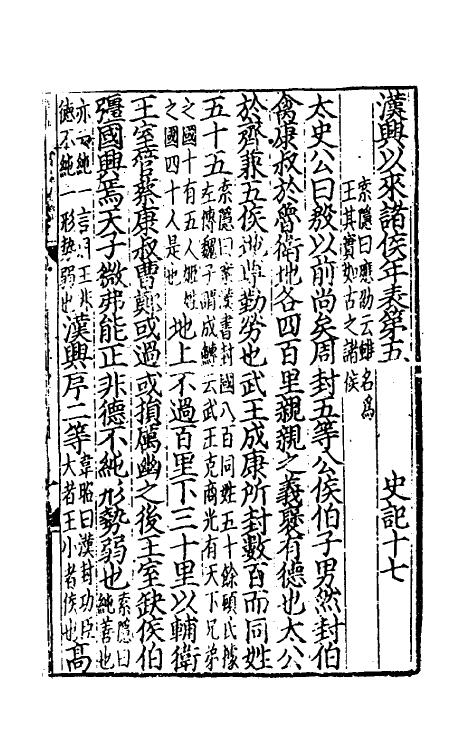 漢興以來諸侯年表第五　史記十七
索隱曰應劭云雖名為
王其實如古之諸侯
太史公曰殷以前尚矣周封五等公侯伯子男然封伯
禽康叔於魯衛地各四百里親親之義褒有德也太公
於齊兼五侯地尊勤勞也武王成康所封數百而同姓
五十五
索隱曰案漢書封國八百同姓五十餘顧氏據
左傳魏子謂成鱄云武王克商光有天下兄弟
之國十有五人姬姓
之國四十人是也
地上不過百里下三十里以輔衛
王室管蔡康叔曹鄭或過或損厲幽之後王室缺侯伯
彊國興焉天子微弗能正非德不純形勢弱也
索隱曰
純善也
亦云純一言周王非
德不純一形勢弱也
漢興序二等
韋昭曰漢封功臣
大者王小者侯也
高